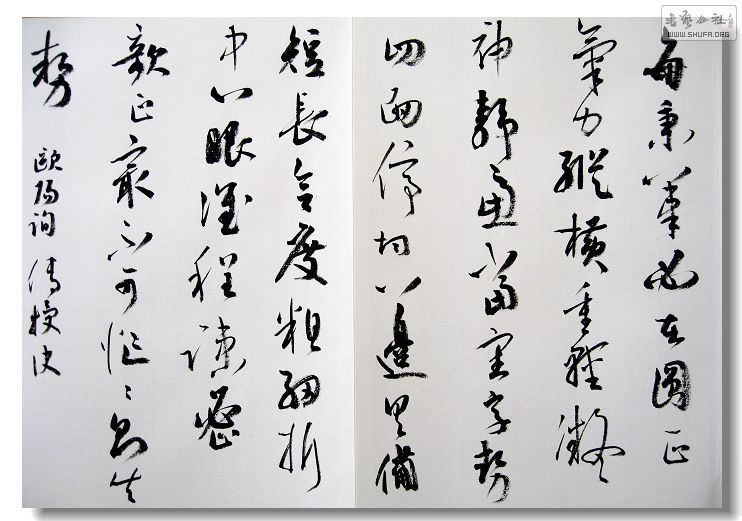 書藝公社
WWW.SHUFA.ORG
每秉筆必在圓正
氣力縱橫重輕凝
神靜慮當審字勢
四面停均八邊具備
短長合度粗細折
中心眼準程疎密
欹正最不可忙〻則失
勢 歐陽詢傳授訣